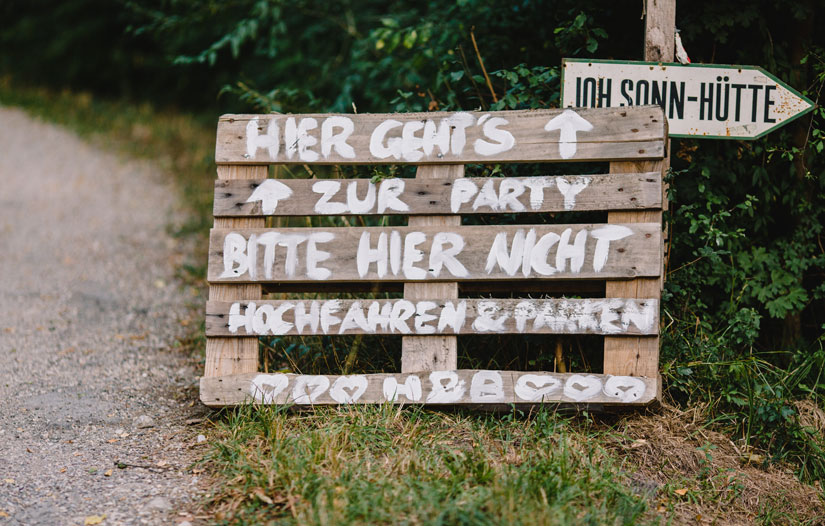 JOH. SONN-HÜTTE
HIER GEHT'S ↑
↑ ZUR PARTY
BITTE HIER NICHT
HOCHFAHREN & PARKEN
♡♡♡ H & B ♡♡♡